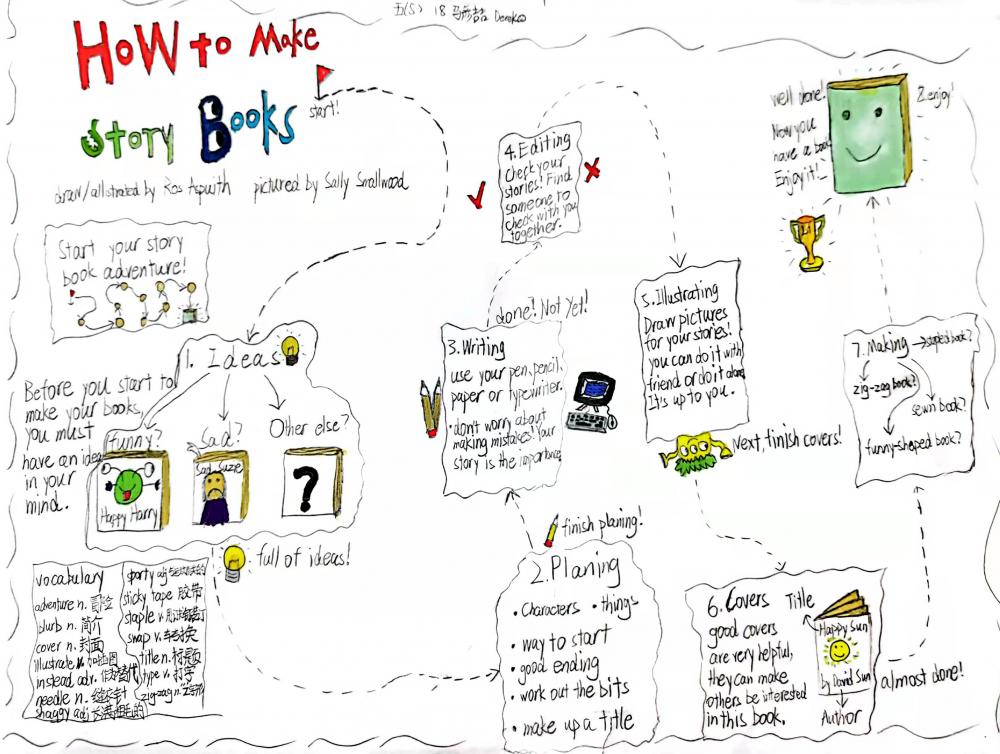 五(5) 18 Derek
How to Make
Story Books
start!
draw/allstrated by Ros Aspwith pictured by Sally Smallwood
Start your story
book adventure!
1. Ideas
Before you start to
make your books,
you must
have an idea
in your
mind.
funny?
Sad?
Other else?
Happy Harry
Sad Suzie
?
full of ideas!
vocabulary
adventure n. 冒险
blurb n. 简介
cover n. 封面
illustrate v. 加插图
instead adv. 代替
needle n. 缝衣针
shaggy adj.
sporty adj.
sticky tape 胶带
staple v.
swap v. 转换
title n. 标题
type v. 打字
zig-zag n.
2. Planing
• Characters • things
• way to start
• good ending
• work out the bits
• make up a title
finish planing!
3. Writing
use your pen, pencil,
paper or typewriter.
• don't worry about
making mistakes! Your
story is the importance
done! Not yet!
4. Editing
check your
stories! Find
someone to
check with you
together.
5. Illustrating
Draw pictures
for your stories!
you can do it with
friend or do it alone
It's up to you.
Next, finish covers!
6. Covers
good covers
are very helpful,
they can make
others be interested
in this book.
Title
Happy Sun
by David Sun
Author
almost done!
7. Making
stapled book?
zig-zag book?
sewn book?
funny-shaped book?
well done!
Now you
have a book
Enjoy it!
enjoy!